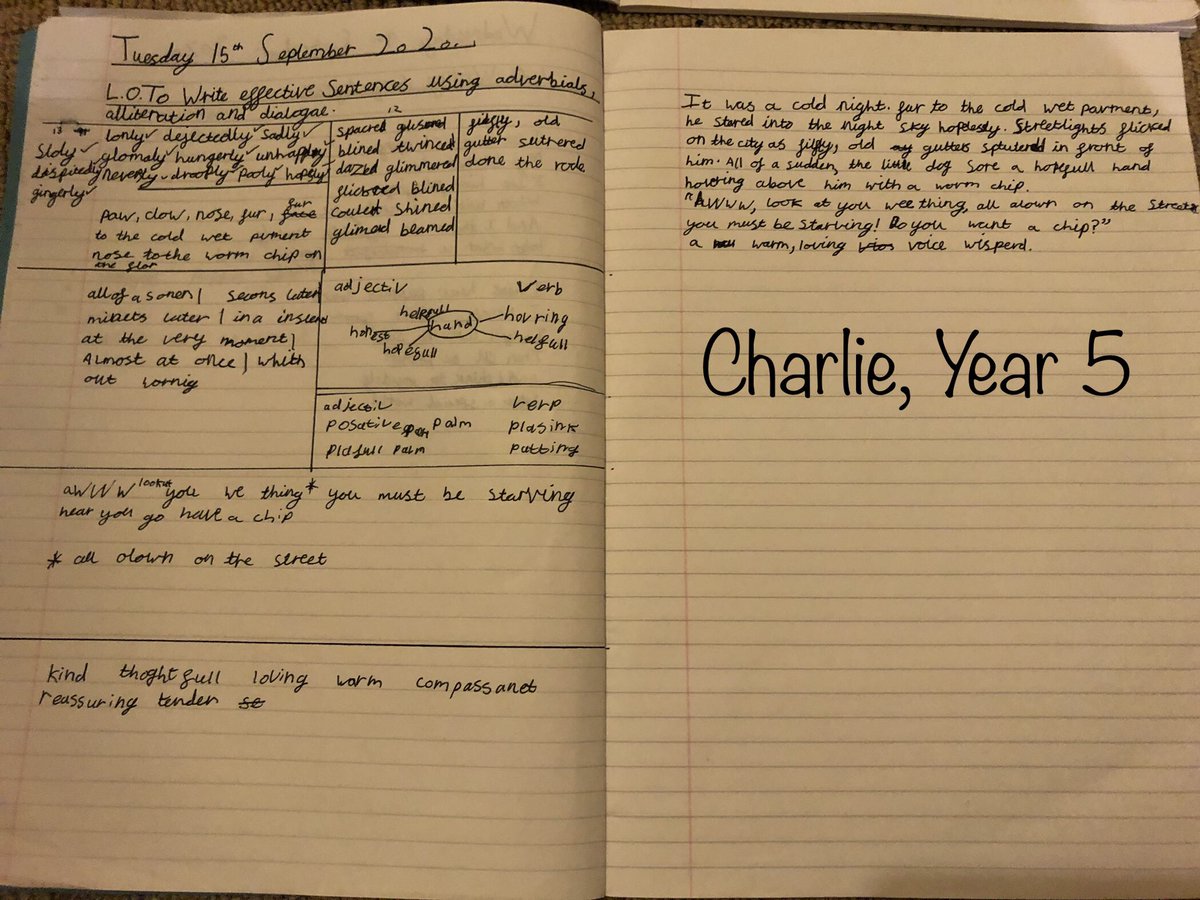 Tuesday 15th September 2020.
L.O.To Write effective Sentences using adverbials,
alliteration and dialogae.
13
Slowly
despitedly
gingerly
lonly dejectedly sadly
glomaly hungerly unhappley
neverly drooply pooly hopely
paw, clow, nose, fur, fur
to the cold wet pument
nose to the worm chip on
the flor
12
spaced glisend
blined twinced
dazed glimmered
flicked blined
couler shined
glimerd beamed
filfly, old
gutter sutrered
done the rode.
all of a sonen| secons later
minets later | in a instend
at the very moment|
Almost at once | whith
out wornig
adjectiv Verb
helpfull
honest hand hovring
hopefull helfull
adjectiv verp
posative palm plasink
plafull palm patting
aWWW look at you we thing* you must be starving
hear you go have a chip
* all olown on the street
kind thoghtfull loving warm compassanet
reassuring tender
It was a cold night. fur to the cold wet pavment,
he stared into the night sky hoplesly. Streetlights flicked
on the city as filfly, old gutters sputured in front of
him. All of a sudden, the little dog sore a hopefull hand
hovring above him with a worm chip.
"AWWW, look at you wee thing, all alown on the Street
you must be starving! Do you want a chip?"
a warm, loving voice wisperd.
Charlie, Year 5